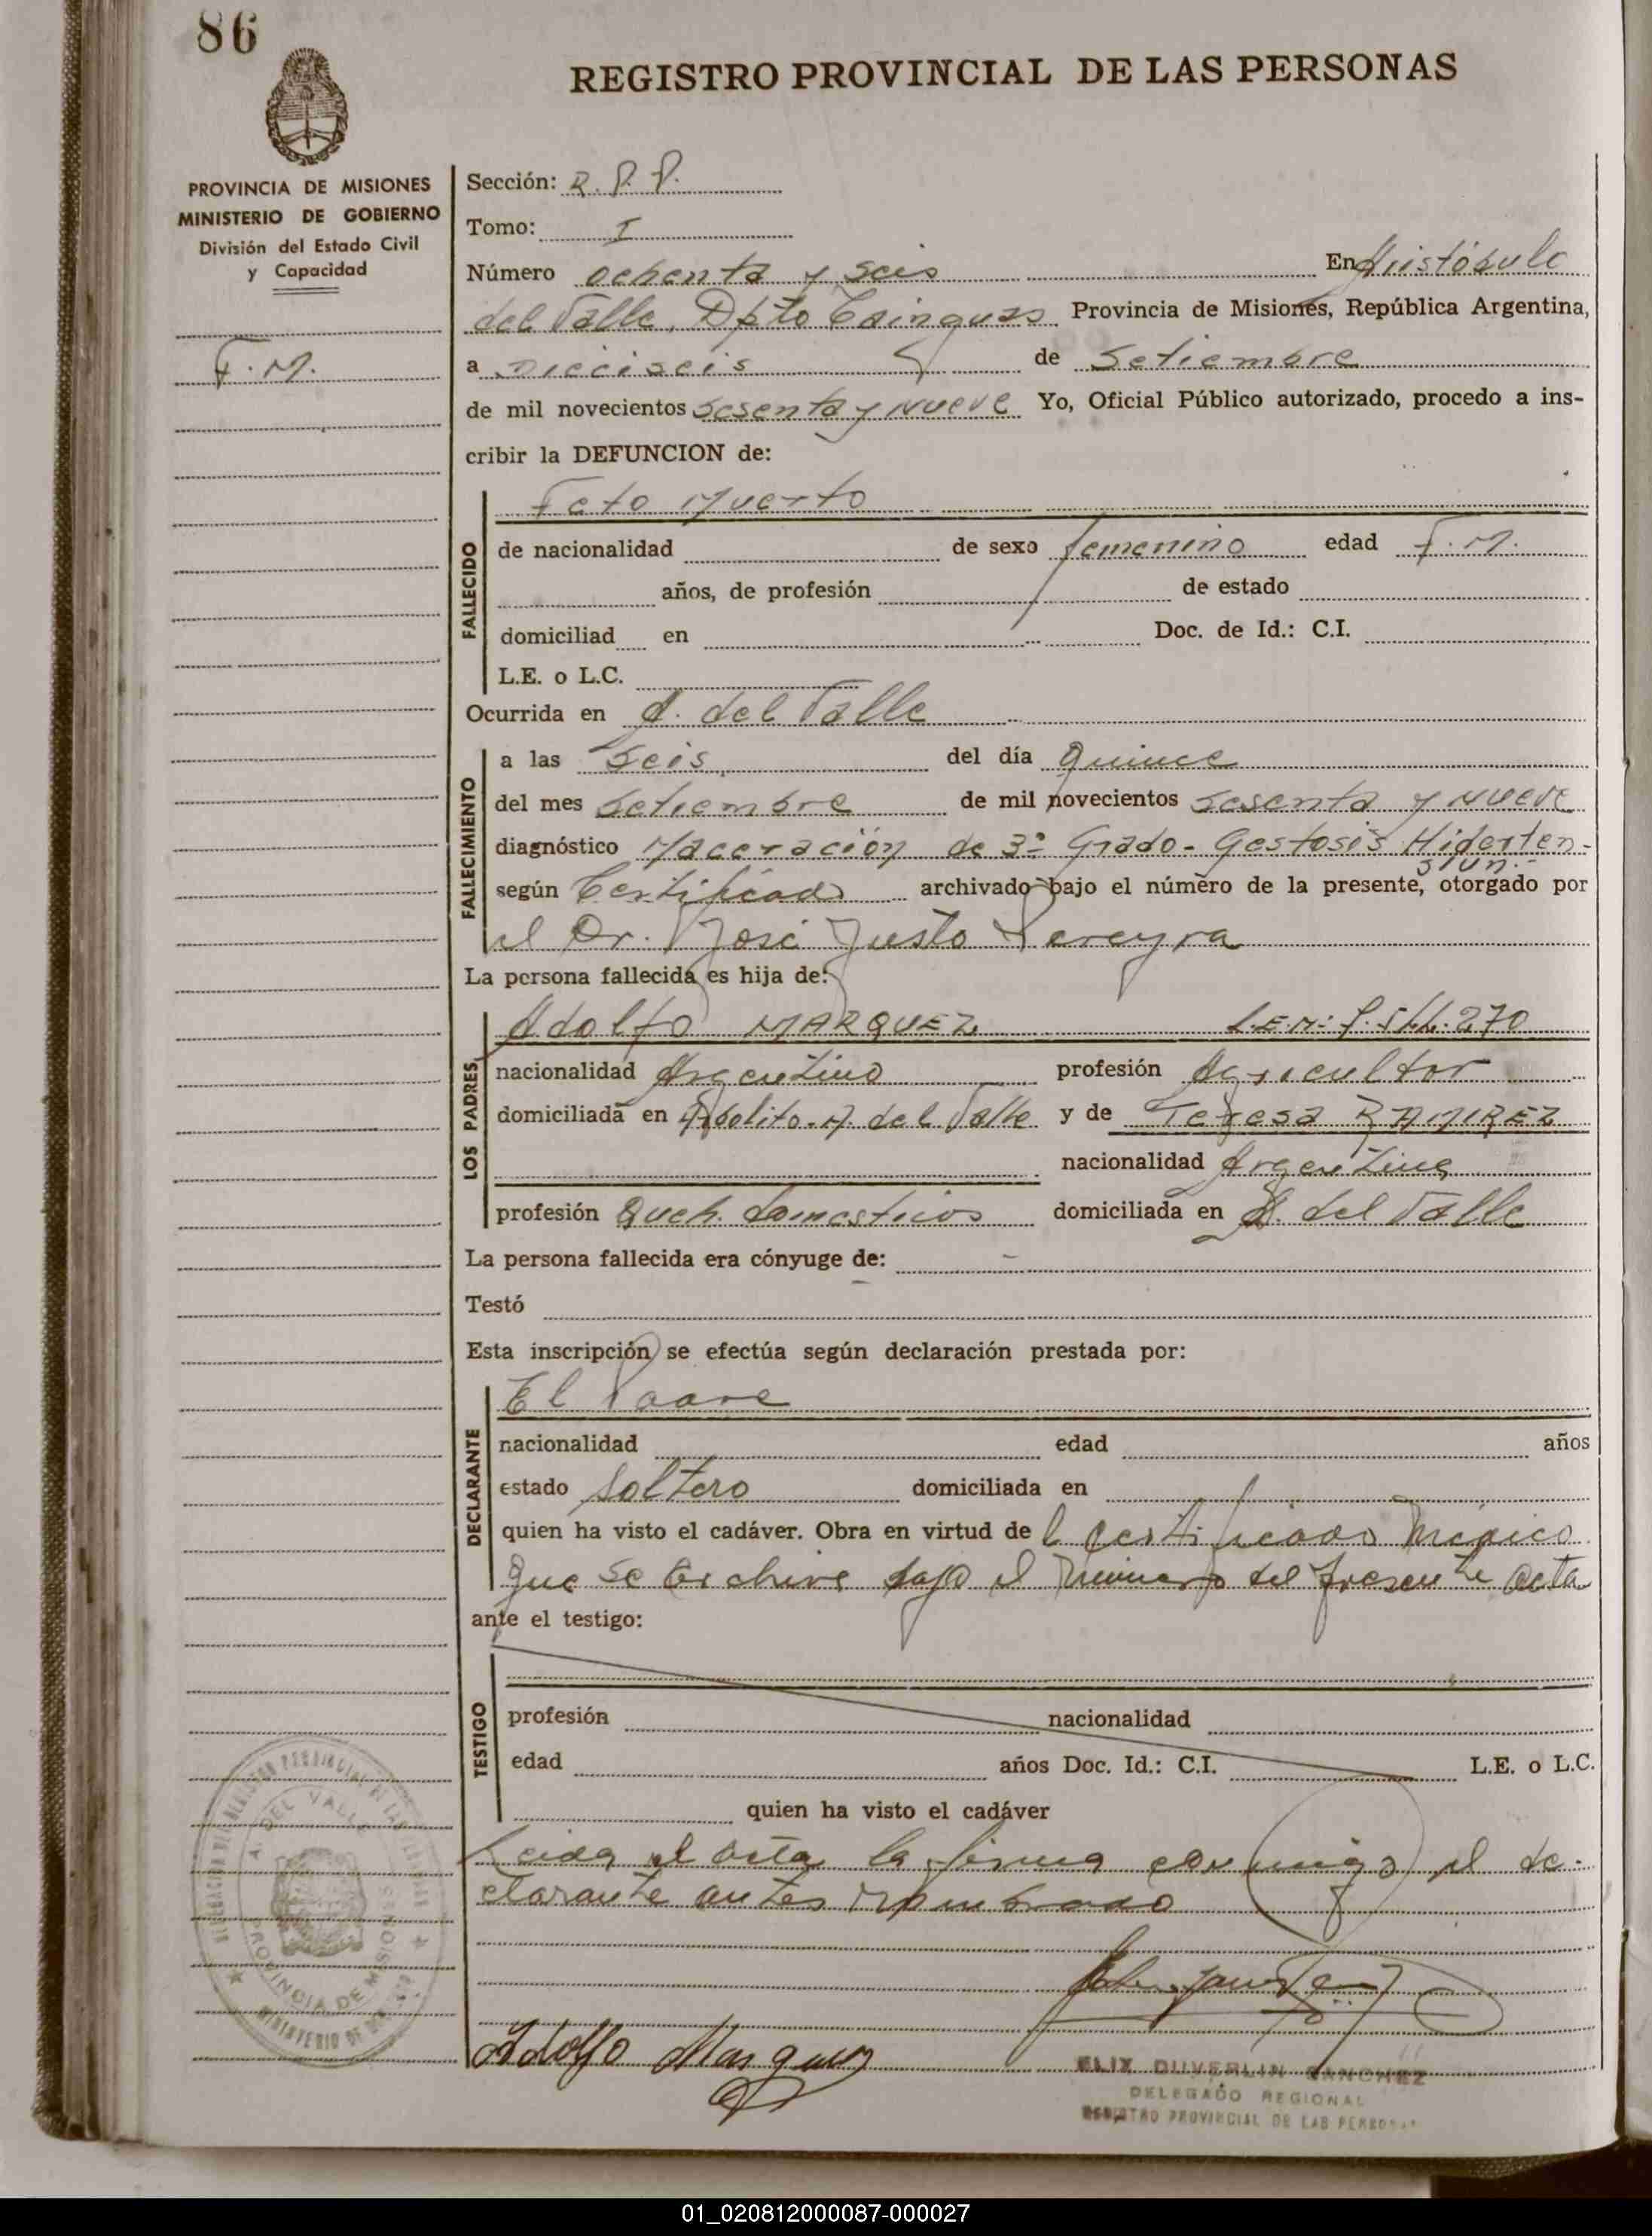 86
REGISTRO PROVINCIAL DE LAS PERSONAS
PROVINCIA DE MISIONES
MINISTERIO DE GOBIERNO
División del Estado Civil
y Capacidad
F. M.
Sección: R. P. P.
Tomo: I
Número ochenta y seis En Aristóbulo
del Valle, Dpto Cainguas Provincia de Misiones, República Argentina,
a Dieciseis de Setiembre
de mil novecientos sesenta y nueve Yo, Oficial Público autorizado, procedo a ins-
cribir la DEFUNCION de:
FALLECIDO
Feto Muerto
de nacionalidad de sexo femenino edad F. M.
años, de profesión de estado
domiciliad en Doc. de Id.: C.I.
L.E. o L.C.
Ocurrida en A. del Valle
FALLECIMIENTO
a las seis del día quince
del mes Setiembre de mil novecientos sesenta y nueve
diagnóstico Maceración de 3º Grado - Gestosis Hiperten-
sión.-
según Certificado archivado bajo el número de la presente, otorgado por
el Dr. José Justo Pereyra
La persona fallecida es hija de:
LOS PADRES
Adolfo MARQUEZ L.E.Nº: 7.544.270
nacionalidad Argentino profesión Agricultor
domiciliada en A. del Valle y de Teresa RAMIREZ
nacionalidad Argentina
profesión Queh. domesticos domiciliada en A. del Valle
La persona fallecida era cónyuge de: -
Testó
Esta inscripción se efectúa según declaración prestada por:
DECLARANTE
El Padre
nacionalidad edad años
estado Soltero domiciliada en
quien ha visto el cadáver. Obra en virtud de l certificado Médico
que se archiva bajo el número del presente acta
ante el testigo:
TESTIGO
profesión nacionalidad
edad años Doc. Id.: C.I. L.E. o L.C.
quien ha visto el cadáver
Leida el acta la firma conmigo el de-
clarante antes nombrado
Adolfo Marquez
ELIX DUVERLIN SANCHEZ
DELEGADO REGIONAL
REGISTRO PROVINCIAL DE LAS PERSONAS
A. DEL VALLE
PROVINCIA DE MISIONES
MINISTERIO DE GOBIERNO
01_020812000087-000027